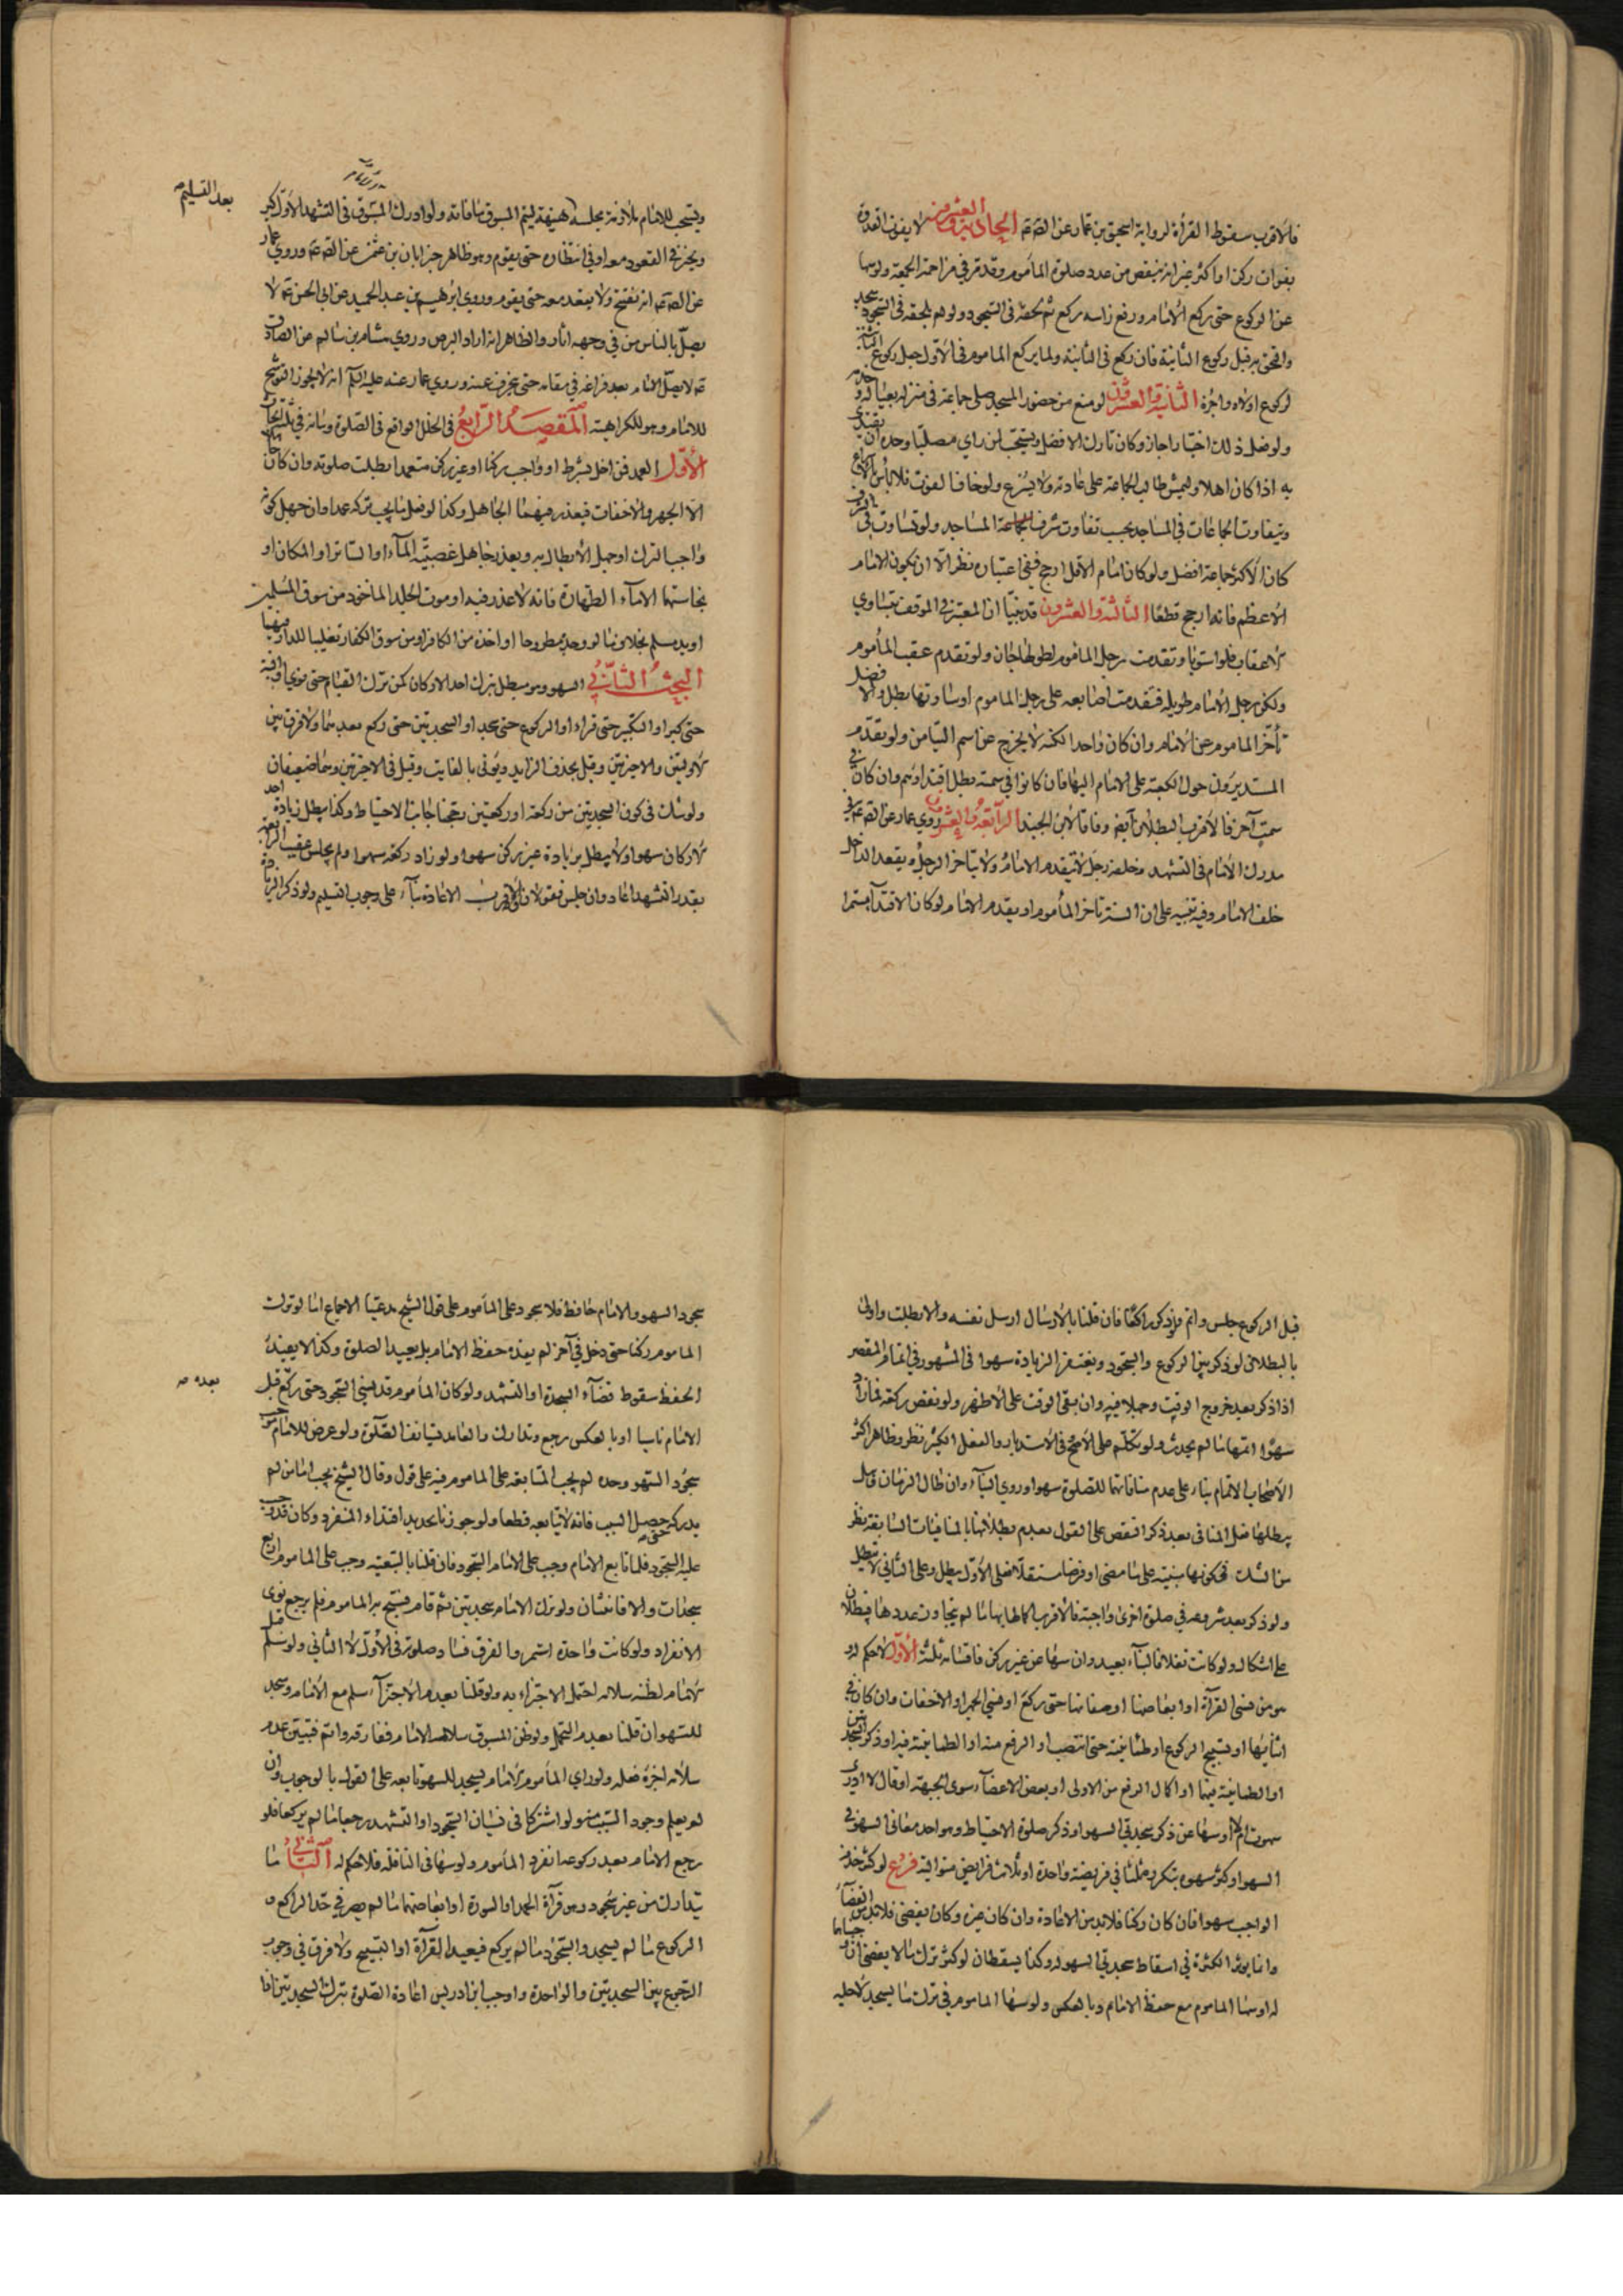 فالاقرب سقوط القرأة لرواية اسحق بن عمار عن الصٓ عٓم الحادية والعشرون لا يفوت القدوة
بفوات ركن او اكثر غير انه ينقص من عدد صلوة المأموم وقد تر في مزاحمة الجمعة ولو سها
عن الركوع حتى ركع الامام ورفع راسه ركع ثم لحقه في السجود ولو لم يلحقه في السجود سجد
والتحق به قبل ركوع الثانية فان ركع في الثانية ولما يركع المأموم في الاول جعل ركوع الثانية
لركوع اولاه واجزءه الثانية والعشرون لو منع من حضور المسجد صلى جماعة في منزله بعياله وخدمه
ولو فعل ذلك اختيارا جاز وكان تارك الافضل ويستحب لمن راي مصليا وحده ان يقتدي
به اذا كان اهلا وليمش طالب الجماعة على عادته ولا يسرع ولو خاف الفوت فلا باس بالاسراع
ويتفاوت الجماعات في المساجد بحسب تفاوت شرف المساجد ولو تساوت في الشرف
كان الاكثر جماعة افضل ولو كان امام الاقل ارجح ففي اعتباره نظر الا ان يكون الامام
الاعظم فانه ارجح قطعا الثالثة والعشرون قد بينا ان المعتبر في الموقف تساوي
الاعقاب فلو استويا وتقدمت رجل المأموم لطولها جاز ولو تقدم عقب المأموم
ولكن رجل الامام طويلة فتقدمت اصابعه على رجل المأموم او ساوتها بطل والافضل
تأخر المأموم عن الامام وان كان واحدا لكنه لا يخرج عن اسم التيامن ولو تقدم
المستديرون حول الكعبة على الامام اليها فان كانوا في سمته بطل اقتداؤهم وان كان في
سمت آخر فالاقرب البطلان ايضا وفاقا لابن الجنيد الرابعة والعشرون روي عمار عن الصٓ عٓم في
مدرك الامام في التشهد وخلفه رجل لا يتقدم الامام ولا يتاخر الرجل ويقعد الداخل
خلف الامام وفيه تنبيه على ان السنة تاخر المأموم او يقدم الامام لو كان الاقتدا مستمرا
ويستحب للامام تلاوته بجلسة هنيهة ليتم المسبوق ما فاته ولو ادرك المسبوق في التشهد الاول كبر
بعد التسليم
ويتخير في القعود معه او في انتظاره حتى يقوم وهو ظاهر خبر ابان بن عثمن عن الصٓ عٓم وروي عمار
عن الصٓ عٓم انه يفتتح ولا يقعد معه حتى يقوم وروي ابرهيم بن عبد الحميد عن ابي الحسن عٓم لا
يصل بالناس من في وجهه آثار والظاهر انه اراد البرص وروي هشام بن سالم عن الصادق
عٓم لا يصل الامام بعد فراغه في مقامه حتى ينحرف عنه وروي عمار عنه عليه السلم انه لا يجوز التوشح
للامام وهو للكراهية المقصد الرابع في الخلل الواقع في الصلوة وبيانه في ثلثة ابحاث
الاول العمد فمن اخل بشرط او واجب ركنا او غير ركن متعمدا بطلت صلوته وان كان جاهلا
الا الجهر والاخفات فيعذر فيهما الجاهل وكذا لو فعل ما يجب تركه عمدا وان جهل كونه
واجب الترك او جهل الابطال به ويعذر جاهل غصبية المآء او الساتر او المكان او
نجاستها الا مآء الطهارة فانه لا عذر فيه او موت الجلد المأخوذ من سوق المسلمين
او يد مسلم بخلاف ما لو وجده مطروحا او اخذه من الكافر او من سوق الكفار تغليبا للدار فيهما
البحث الثاني السهو وهو مبطل بترك احد الاركان كمن ترك القيام حتى نوي او النية
حتى كبر او التكبير حتى قراء او الركوع حتى سجد او السجدتين حتى ركع بعدهما ولا فرق بين
الاوليين والاخيرتين وقيل يحذف الزايد ويؤتى بالفايت وقيل في الاخيرتين وهما ضعيفان
ولو شك في كون السجدتين من ركعة او ركعتين رجحنا جانب الاحتياط وكذا يبطل زيادة احد
الاركان سهوا ولا يبطل بزيادة غير ركن سهوا ولو زاد ركعة سهوا ولم يجلس عقيب الرابعة
بقدر التشهد اعاد وان جلس فقولان والاقرب الاعادة بناء على وجوب التسليم ولو ذكر الزيادة
قبل الركوع جلس واتم ولو ذكر راكعا فان قلنا بالارسال ارسل نفسه والا بطلت واولى
بالبطلان لو ذكر بين الركوع والسجود ويغتفر الزيادة سهوا في المشهور في اتمام المقصر
اذا ذكر بعد خروج الوقت وجهلا فيه وان بقي الوقت على الاظهر ولو نقص ركعة فمازاد
سهوا اتمها ما لم يحدث ولو تكلم على الاصح وفي الاستدبار والفعل الكثير نظر وظاهر اكثر
الاصحاب الاتمام بناء على عدم منافاتهما للصلوة سهوا وروي البناء وان طال الزمان فان
يبطلها فعل المنافي بعد ذكر النقص على القول بعدم بطلانها بالمنافيات السابقة نظر
من الشك في كونها مبنية على ما مضى او فرضا مستقلا فعلى الاول يبطل وعلى الثاني لا يبطل
ولو ذكر بعد شروعه في صلوة اخرى واجبة فالاقرب اكمالها بها ما لم يتجاوز عددها فيبطلان
على اشكال ولو كانت نفلا فالبناء بعيد وان سها عن غير ركن فاقسامه ثلثة الاول لا حكم له
هو من نسي القرآة او ابعاضها او صفاتها حتى ركع او نسي الجهر او الاخفات وان كان في
اثنائها او تسبيح الركوع او طمأنينته حتى انتصب او الرفع منه او الطمانينة فيه او ذكر السجدتين
او الطمانينة فيهما او اكمال الرفع من الاولى او بعض الاعضاء سوى الجبهة او قال لا ادري
سهوت ام لا او سها عن ذكر سجدتي السهو او ذكر صلوة الاحتياط وهو احد معاني السهو في
السهو او كثر سهوه بتكرره ثلثا في فريضة واحدة او ثلاث فرايض متوالية فرع لو كثر منه ترك
الواجب سهوا فان كان ركنا فلا بد من الاعادة وان كان غيره وكان يقضى فلا بد من القضاء
وانما يؤثر الكثرة في اسقاط سجدتي السهو له وكذا يسقطان لو كثر ترك ما لا يقضى
له او سها المأموم مع حفظ الامام وبالعكس ولو سها المأموم في ترك ما يسجد لاجله
سجود السهو والامام حافظ فلا سجود على المأموم على قول الشيخ مدعيا الاجماع اما لو ترك
المأموم ركنا حتى دخل في آخر لم يفده حفظ الامام بل يعيد الصلوة وكذا لا يفيده
الحفظ سقوط قضآء السجدة او التشهد ولو كان المأموم قد نسي السجود حتى ركع قبل
بعده
الامام ناسيا او بالعكس رجع وتدارك والعامد يستانف الصلوة ولو عرض للامام موجب
سجود السهو وحده لم يجب المتابعة على المأموم فيه على قول وقال الشيخ يجب اما من لم
يدركه حين حصل السبب فانه لا يتابعه قطعا ولو جوزنا تجديد اقتداء المنفرد وكان قد وجب
عليه السجود فلما تابع الامام وجب على الامام السجود فان قلنا بالتبعية وجب على المأموم اربع
سجدات والا فاثنتان ولو ترك الامام سجدتين ثم قام فسبح به المأموم فلم يرجع نوى
الانفراد ولو كانت واحدة استمر والفرق فساد صلوته في الاول لا الثاني ولو سلم قبل
الامام لظنه سلامه احتمل الاجتزاء به ولو قلنا بعدم الاجتزاء سلم مع الامام وسجد
للسهو ان قلنا بعدم التحمل ولو ظن المسبوق سلام الامام ففارقه واتم فتبين عدم
سلامه اجزءه فعله ولو راي المأموم الامام يسجد للسهو تابعه على القول بالوجوب وان
لم يعلم وجود السبب منه ولو اشتركا في نسيان السجود او التشهد رجعا ما لم يركعا فلو
رجع الامام بعد ركوعه انفرد المأموم ولو سها في النافلة فلا حكم له الثاني ما
يتدارك من غير سجود وهو قرآة الحمد او السورة او ابعاضهما ما لم يصر في حد الراكع و
الركوع ما لم يسجد والسجود ما لم يركع فيعيد القرآة او التسبيح ولا فرق في وجوب
الرجوع بين السجدتين والواحدة واوجب ابن ادريس اعادة الصلوة بترك السجدتين اذا